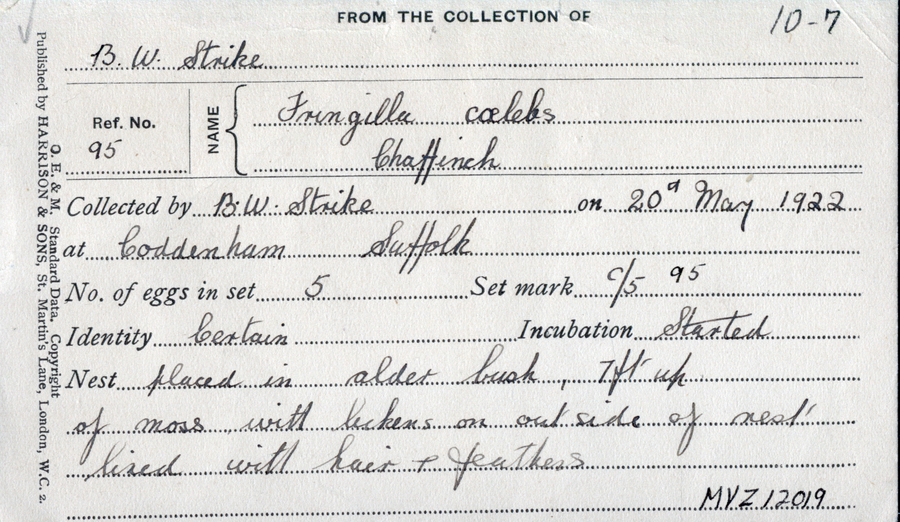 FROM THE COLLECTION OF
10-7
B. W. Strike
Ref. No.
95
NAME
Fringilla cœlebs
Chaffinch
Collected by B.W. Strike on 20ᵈ May 1922
at Coddenham Suffolk
No. of eggs in set 5 Set mark c/5 95
Identity Certain Incubation Started
Nest placed in alder bush, 7ft up
of moss with lickens on outside of nest
lined with hair + feathers
MVZ 12019
O. E. & M. Standard Data. Copyright
Published by HARRISON & SONS, St. Martin's Lane, London, W.C. 2.